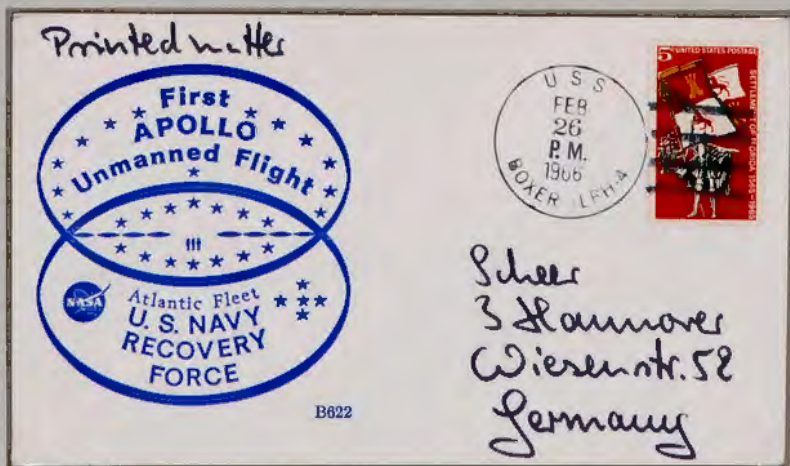 Printed matter
First
APOLLO
Unmanned Flight
NASA
Atlantic Fleet
U. S. NAVY
RECOVERY
FORCE
B622
USS
FEB
26
P.M.
1966
BOXER LPH-4
5c UNITED STATES POSTAGE
SETTLEMENT OF FLORIDA 1565-1965
Scheer
3 Hannover
Wiesenstr. 52
Germany